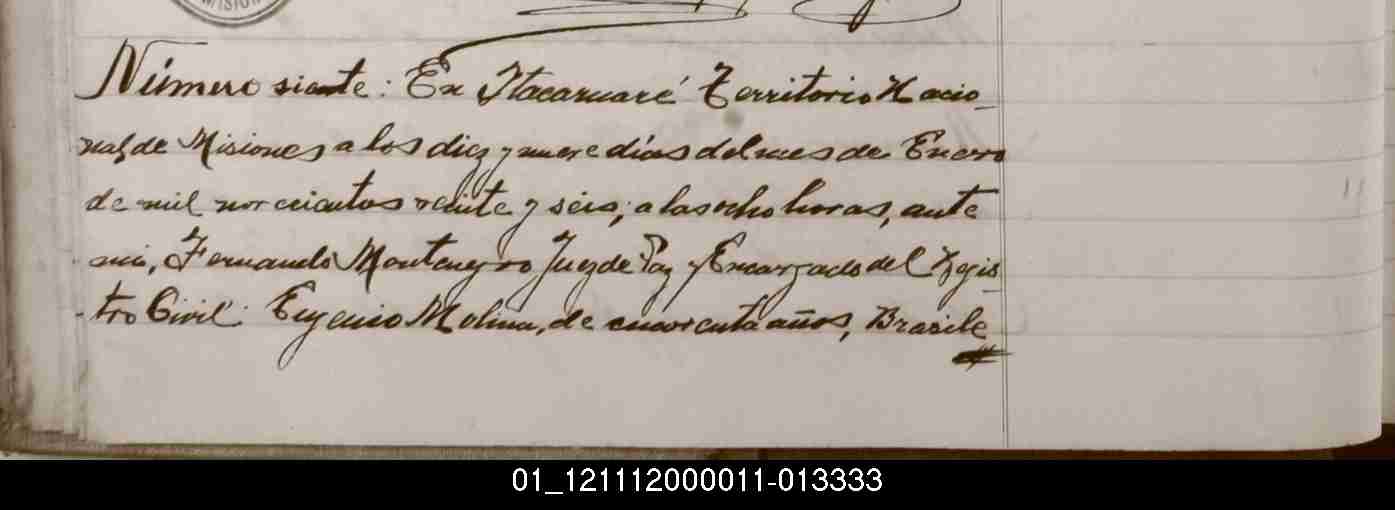 MISION
Número siente: En Itacaruaré Territorio Nacio_
nal de Misiones a los diez y nueve días del mes de Enero
de mil novecientos veinte y seis, a las ocho horas, ante
mi, Fernando Montenegro Juez de Paz y Encargado del Regis_
tro Civil: Eugenio Molina, de cuarenta años, Brasile
01_121112000011-013333